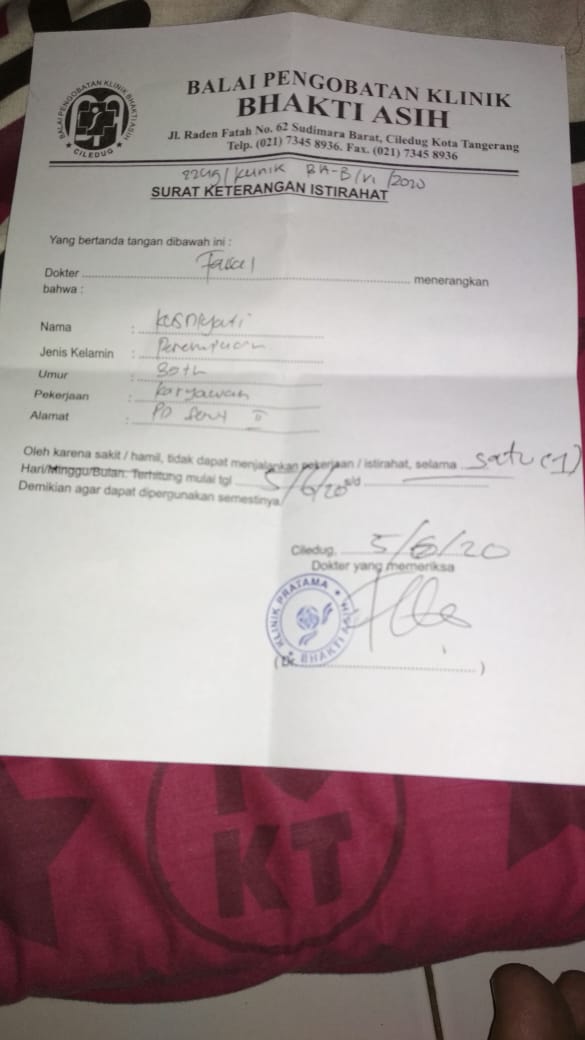 BALAI PENGOBATAN KLINIK BHAKTI ASIH
CILEDUG
BALAI PENGOBATAN KLINIK
BHAKTI ASIH
Jl. Raden Fatah No. 62 Sudimara Barat, Ciledug Kota Tangerang
Telp. (021) 7345 8936. Fax. (021) 7345 8936
/Klinik BA-B/VI/2020
SURAT KETERANGAN ISTIRAHAT
Yang bertanda tangan dibawah ini :
Dokter menerangkan
bahwa :
Nama :
Jenis Kelamin : Perempuan
Umur : 30 th
Pekerjaan : Karyawan
Alamat : II
Oleh karena sakit / hamil, tidak dapat menjalankan pekerjaan / istirahat, selama satu (1)
Hari/Minggu/Bulan. Terhitung mulai tgl 5/6/20 s/d
Demikian agar dapat dipergunakan semestinya.
Ciledug, 5/6/20
Dokter yang memeriksa
KLINIK PRATAMA
BHAKTI ASIH
(Dr. )
KT